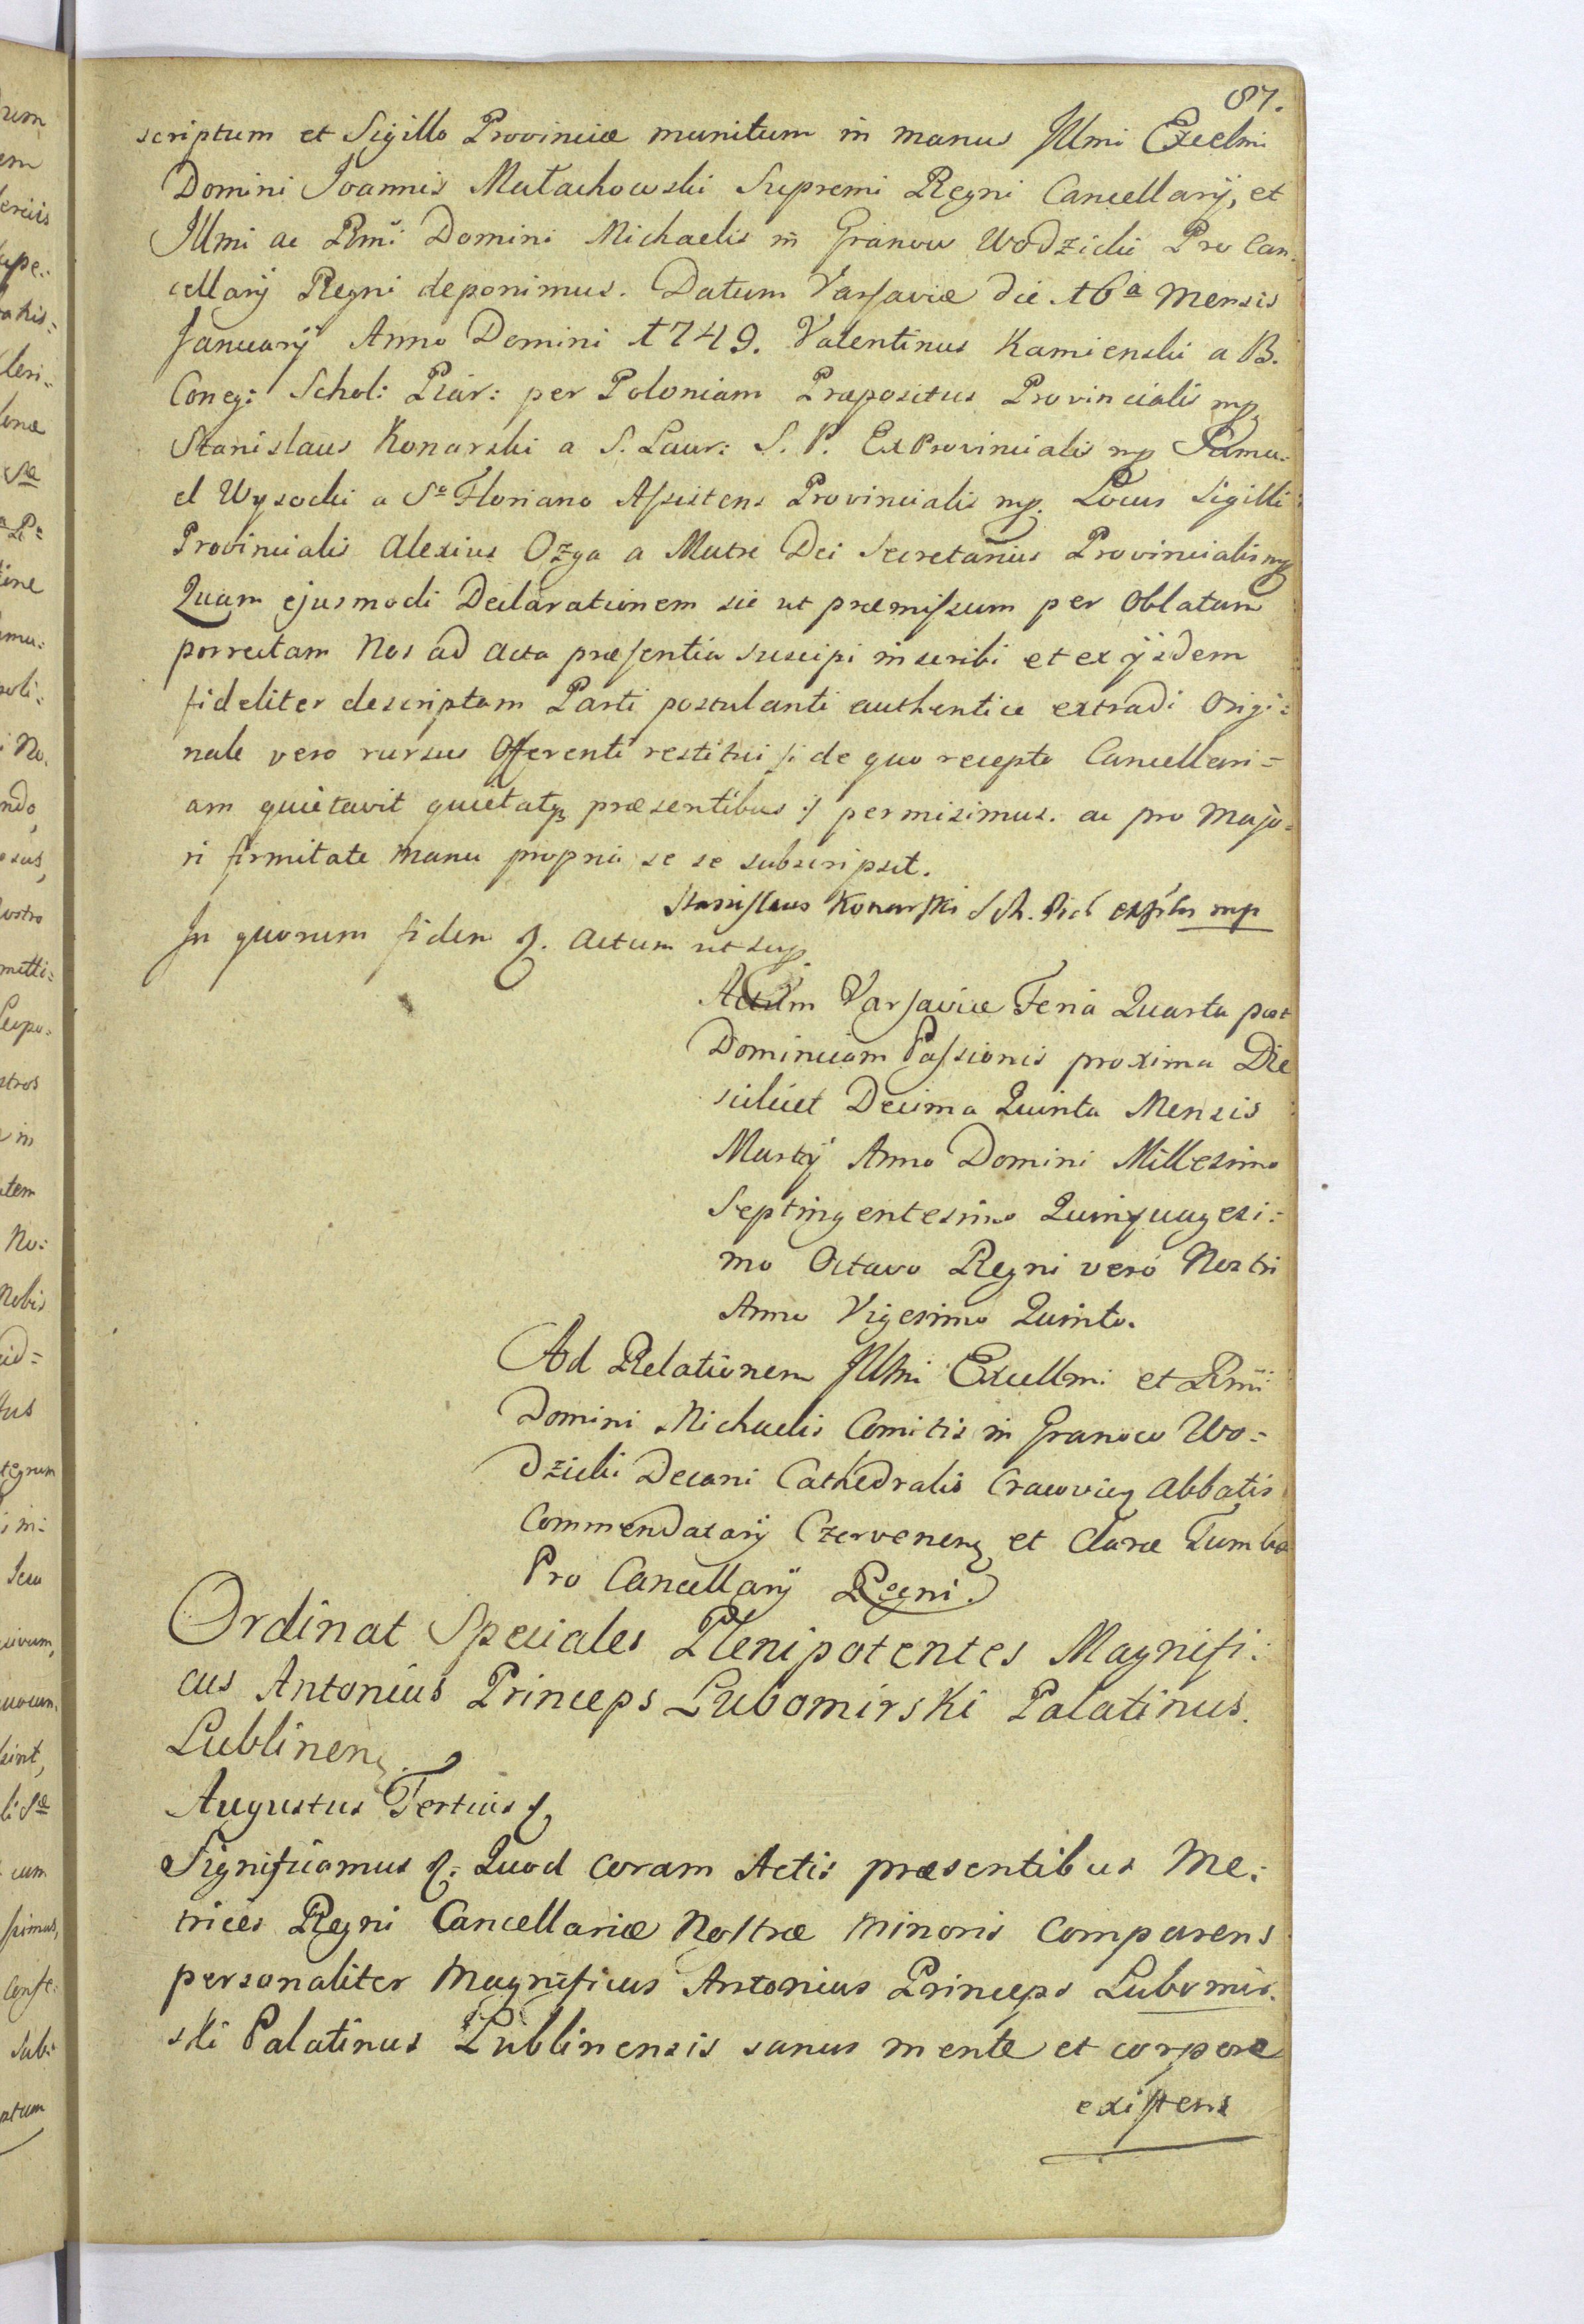 87.
scriptum et Sigillo Provinciæ munitum in manus Illmi Excelmi
Domini Joannis Małachowski Supremi Regni Cancellarÿ, et
Illmi ac Rmi Domini Michaelis in Granow Wodzicki Pro Can-
cellarÿ Regni deponimus. Datum Varsaviæ die 16a Mensis
Januarÿ Anno Domini 1749. Valentinus Kamienski a B.
Coneg: Schol: Piar: per Poloniam Præpositus Provincialis mp
Stanislaus Konarski a S. Laur: S. P. ExProvincialis mp Samu-
el Wysocki a So Floriano Assistens Provincialis mp. Locus Sigilli
Provincialis Alexius Ozga a Matre Dei Secretarius Provincialis mp
Quam ejusmodi Declarationem sic ut præmissum per Oblatam
porrectam Nos ad Acta præsentia suscipi inscribi et ex ÿsdem
fideliter descriptam Parti postulanti authentice extradi Origi=
nale vero rursus Offerenti restitui /: de quo recepto Cancellari=
am quietavit quietatq præsentibus :/ permisimus. ac pro Majo=
ri firmitate manu propria se se subscripsit.
Stanislaus Konarski Sch. Pia mp
In quorum fidem &. Actum ut sup.
Actum Varsaviæ Feria Quarta post
Dominicam Passionis proxima Die
scilicet Decima Quinta Mensis
Martÿ Anno Domini Millesimo
Septingentesimo Quinquagesi=
mo Octavo Regni vero Nostri
Anno Vigesimo Quinto.
Ad Relationem Illmi Excellmi et Rmi
Domini Michaelis Comitis in Granow Wo=
dzicki Decani Cathedralis Cracovien Abbatis
Commendatarÿ Czervenen et Claræ Tumbæ
Pro Cancellarÿ Regni.
Ordinat Speciales Plenipotentes Magnifi:
cus Antonius Princeps Lubomirski Palatinus
Lublinen
Augustus Tertius &
Significamus &: Quod coram Actis præsentibus Me:
trices Regni Cancellariæ Nostræ Minoris Comparens
personaliter Magnificus Antonius Princeps Lubomir-
ski Palatinus Lublinensis sanus mente et corpore
existens